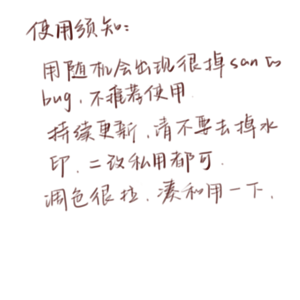 使用须知:
用随机会出现很掉san的
bug,不推荐使用
持续更新,请不要去掉水
印,二改私用都可.
调色很拉,凑和用一下.